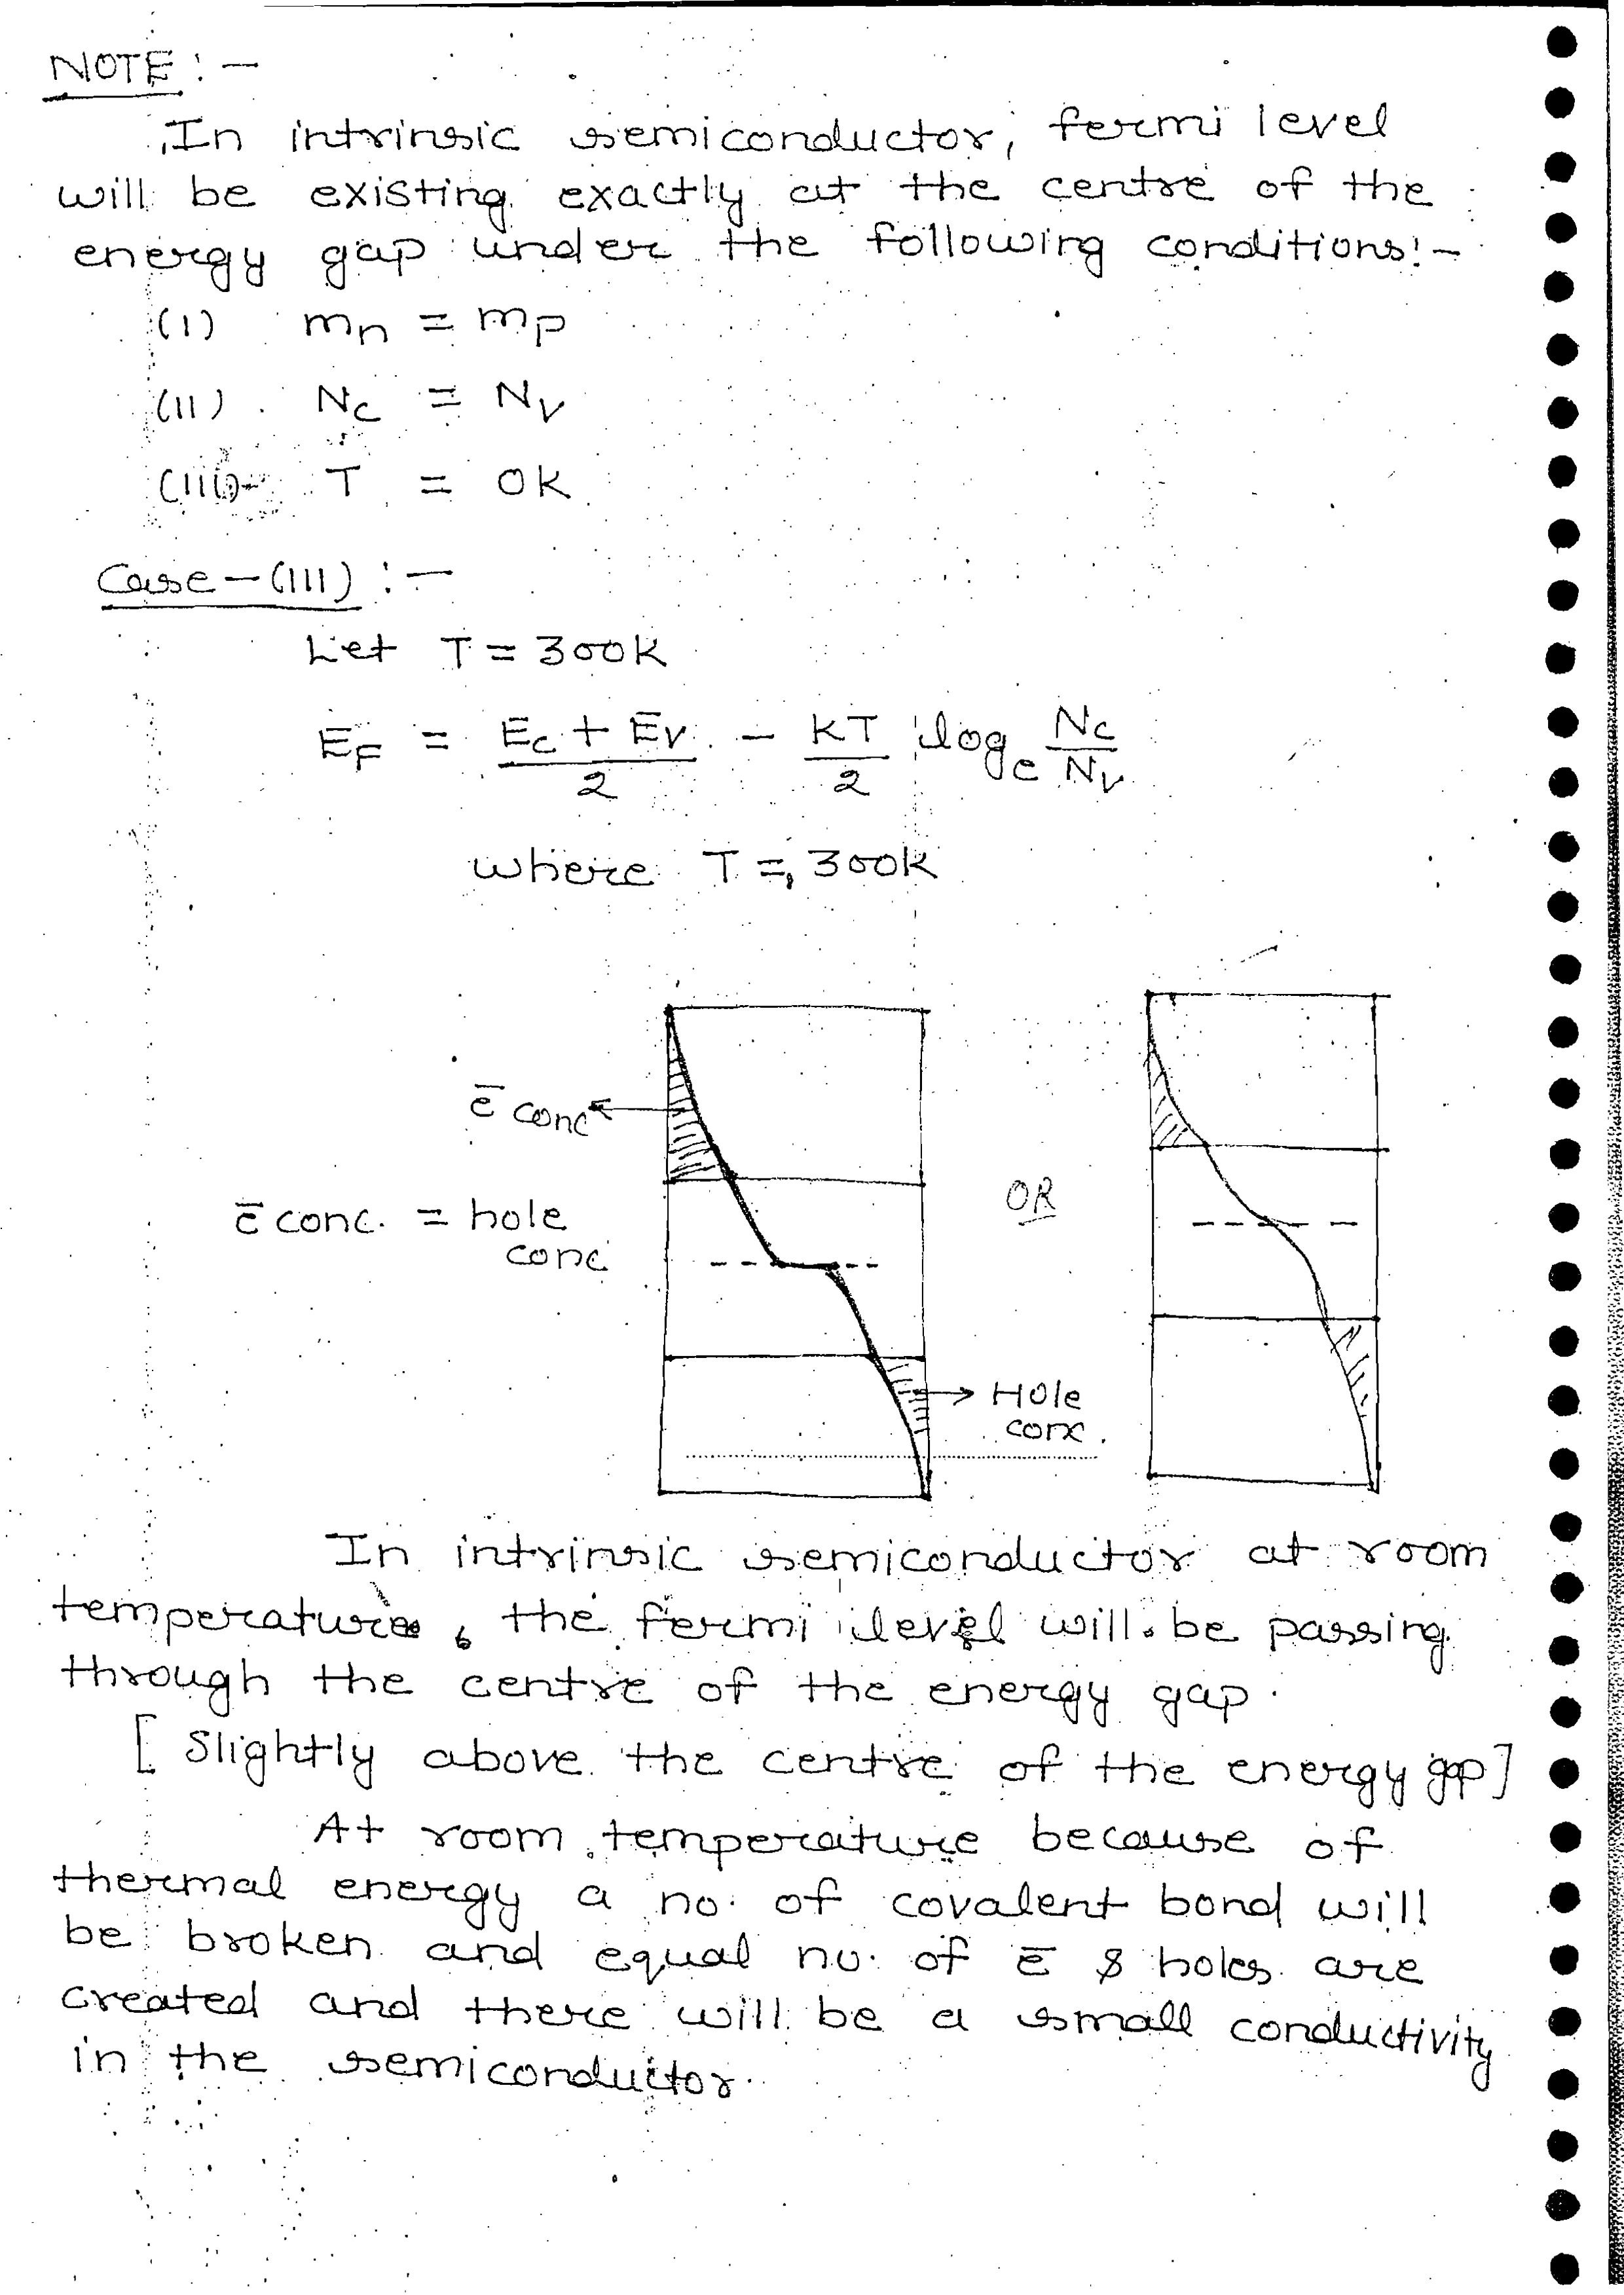 NOTE :-
In intrinsic semiconductor, fermi level
will be existing exactly at the centre of the
energy gap under the following conditions:-
(I) mn = mp
(II) Nc = Nv
(III) T = 0K
Case-(III) :-
Let T = 300K
EF = Ec + Ev / 2 - KT / 2 loge Nc / Nv
where T = 300K
ē conc
ē conc. = hole
conc
OR
Hole
conc.
In intrinsic semiconductor at room
temperature, the fermi level will be passing
through the centre of the energy gap.
[ Slightly above the centre of the energy gap]
At room temperature because of
thermal energy a no. of covalent bond will
be broken and equal no. of ē & holes are
created and there will be a small conductivity
in the semiconductor.